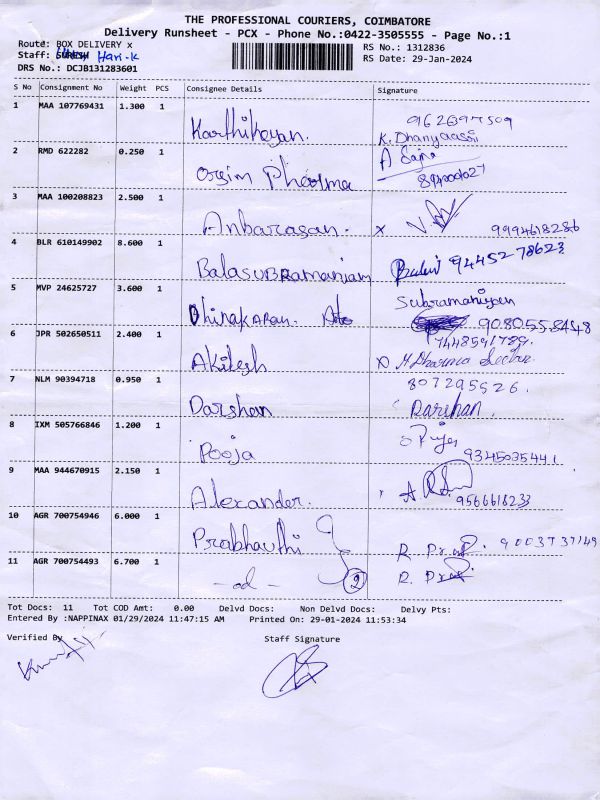 THE PROFESSIONAL COURIERS, COIMBATORE
Delivery Runsheet - PCX - Phone No.:0422-3505555 - Page No.:1
Route: BOX DELIVERY x RS No.: 1312836
Staff: Hari-K RS Date: 29-Jan-2024
DRS No.: DCJB131283601
S No Consignment No Weight PCS Consignee Details Signature
1 MAA 107769431 1.300 1 Karthikeyan. 9626397509
K. Dhanyaassri
2 RMD 622282 0.250 1 Orgim Pharma A Sajna
3 MAA 100208823 2.500 1 Anbarasan. x 9994618286
4 BLR 610149902 8.600 1 Balasubramaniam 9445278623
5 MVP 24625727 3.600 1 Dhinakaran. Subramaniyen
9080558448
6 JPR 502650511 2.400 1 Akilesh 7448591789.
7 NLM 90394718 0.950 1 Darshan 807295526.
Darshan.
8 IXM 505766846 1.200 1 Pooja 9345035441
9 MAA 944670915 2.150 1 Alexander. 9566618233
10 AGR 700754946 6.000 1 Prabhavthi 9003737149
11 AGR 700754493 6.700 1 -ad- 2
Tot Docs: 11 Tot COD Amt: 0.00 Delvd Docs: Non Delvd Docs: Delvy Pts:
Entered By :NAPPINAX 01/29/2024 11:47:15 AM Printed On: 29-01-2024 11:53:34
Verified By Staff Signature